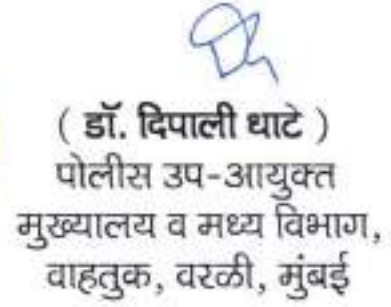 ( डॉ. दिपाली धाटे )
पोलीस उप-आयुक्त
मुख्यालय व मध्य विभाग,
वाहतुक, वरळी, मुंबई